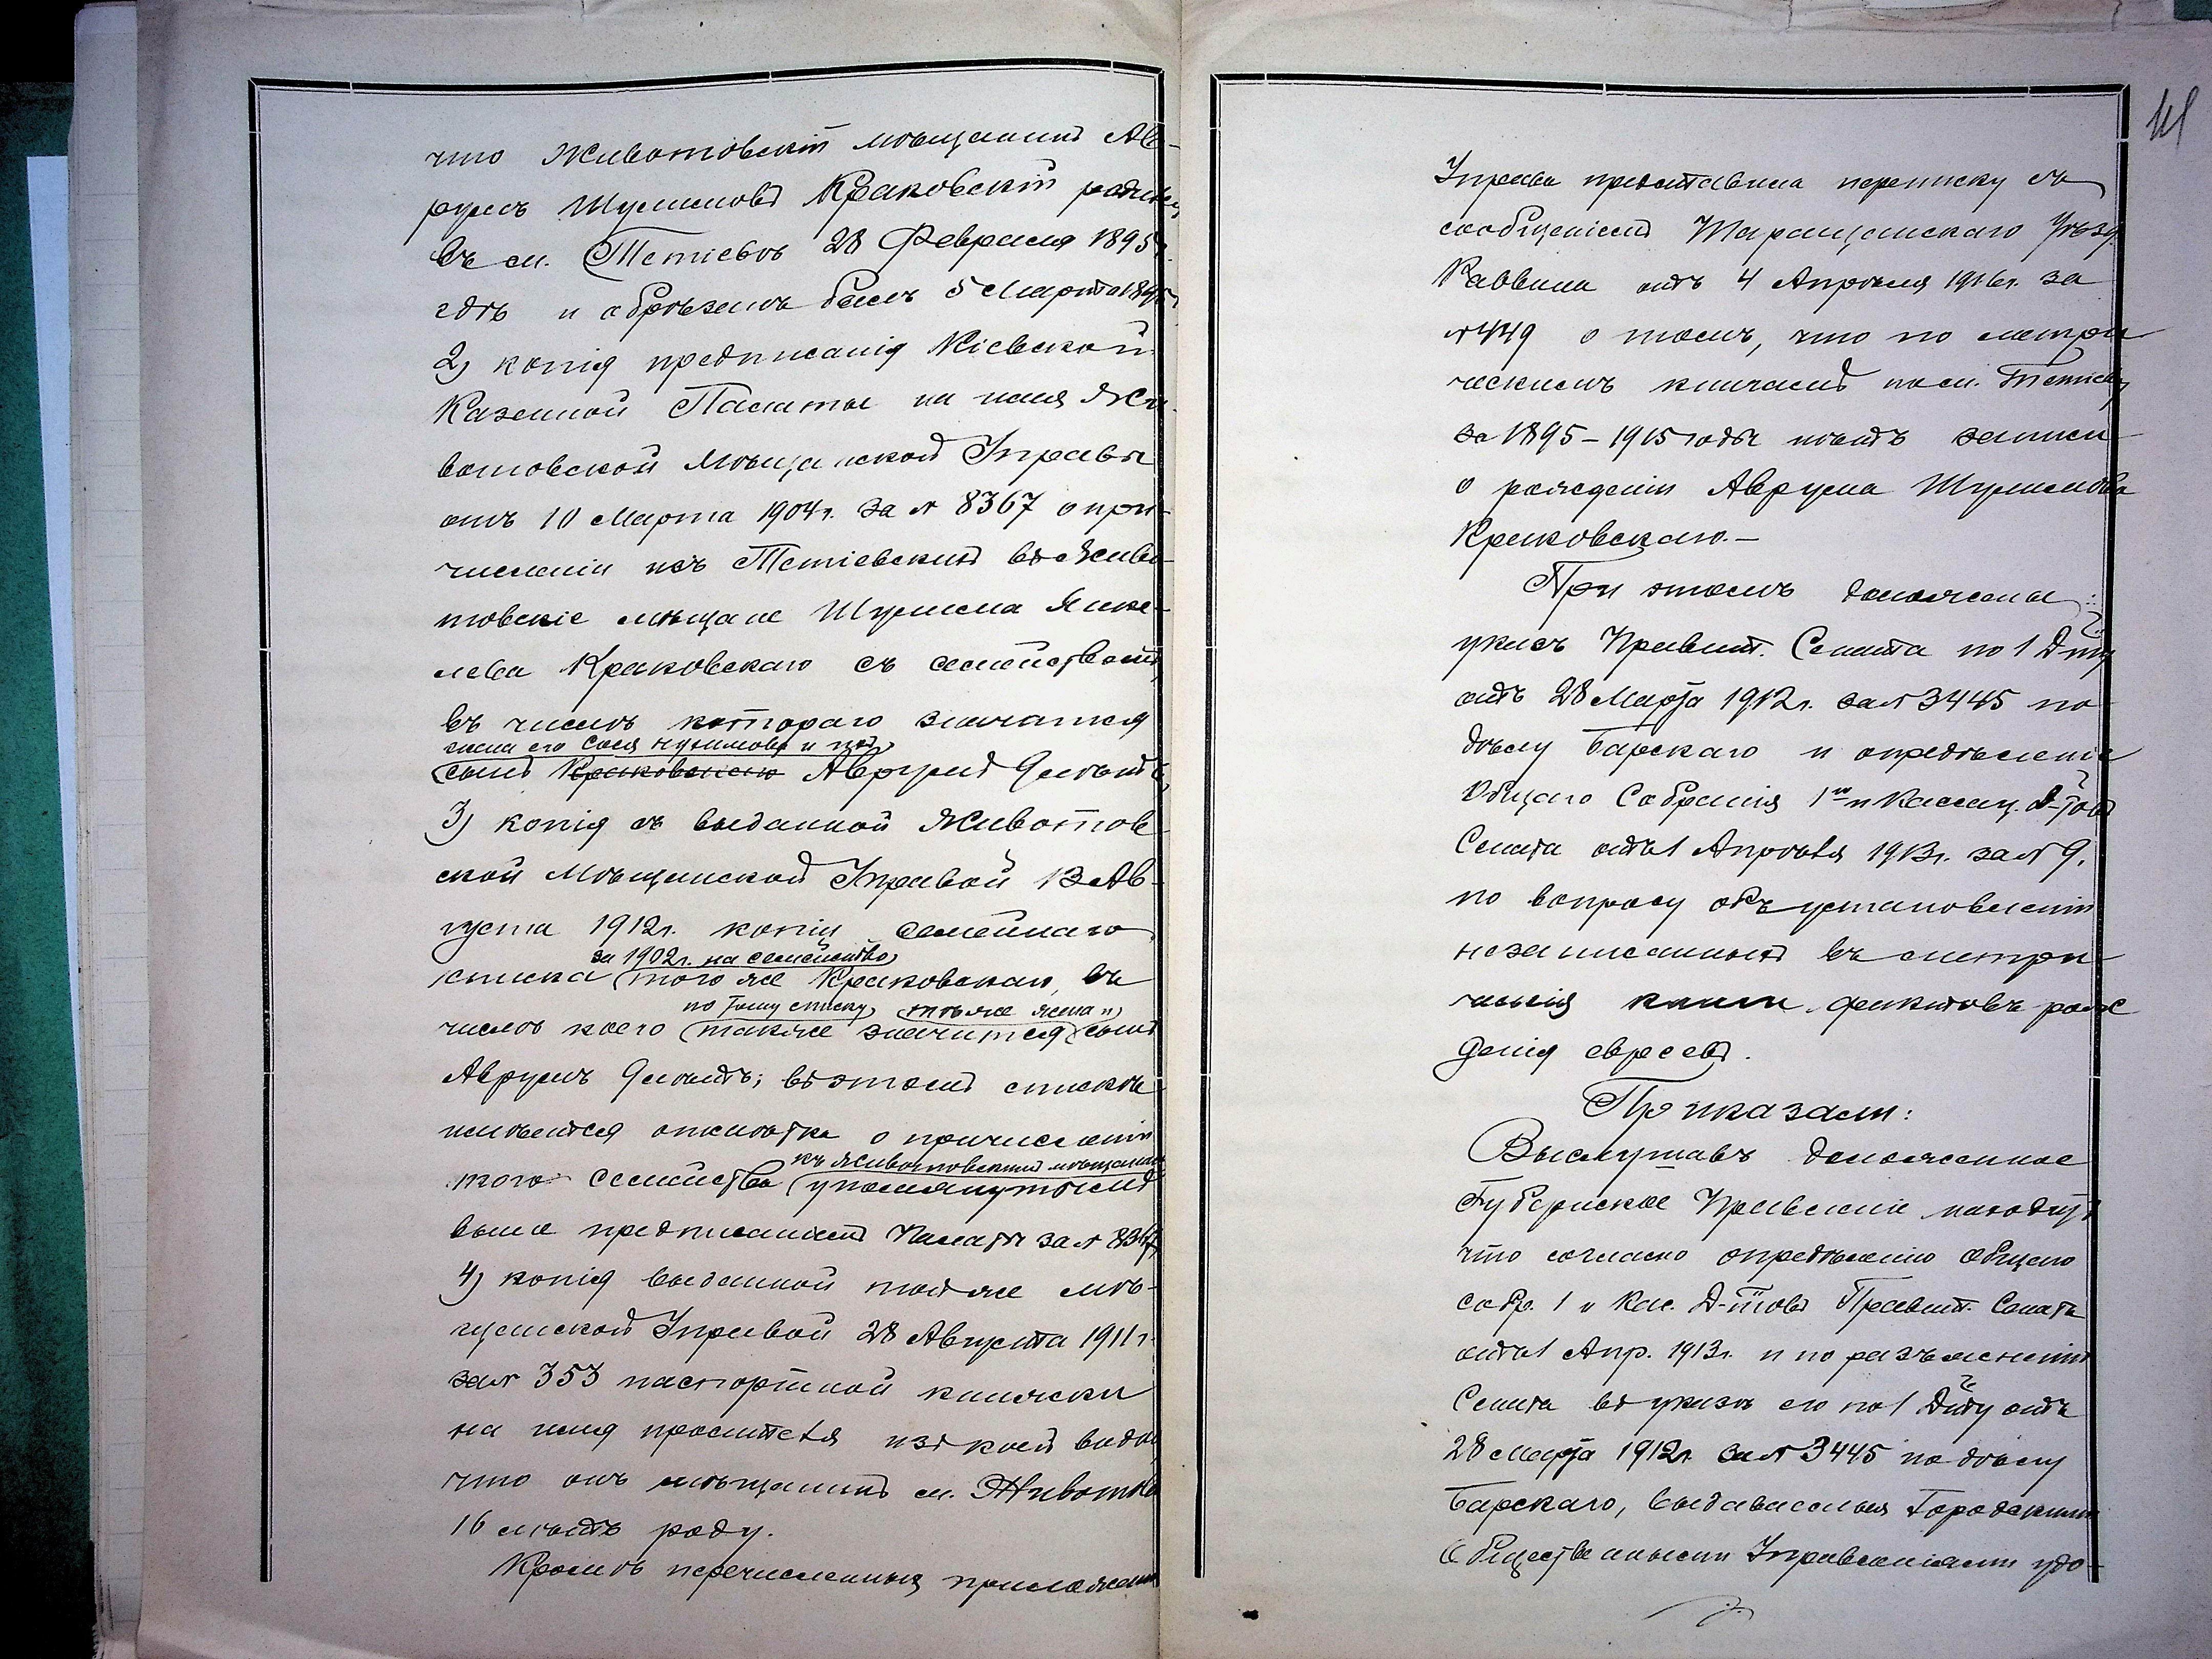 что Животовскій мѣщанинъ Ав-
румъ Шулимовъ Краковскій родился
въ м. Тетіевѣ 28 Февраля 1895 г.
гдѣ и обрѣзанъ былъ 5 Марта 1895 г.
2) копія предписанія Кіевской
Казенной Палаты на имя Жи-
вотовской Мѣщанской Управы
отъ 10 Марта 1904 г. за № 8367 о при-
численіи изъ Тетіевскихъ въ Живо-
товскіе мѣщане Шулима Янке-
лева Краковскаго съ семействомъ,
въ числѣ котораго значатся
жена его Сося Нухимова и
сынъ Краковскаго Аврумъ 9 лѣтъ,
3) копія съ выданной Животов-
ской Мѣщанской Управой 13 Ав-
густа 1912 г. копіи семейнаго
за 1902 г. на семейство
списка того же Краковскаго, въ
по тому списку тѣ же жена и
числѣ коего также значится сынъ
Аврумъ 9 лѣтъ; въ этомъ спискѣ
имѣется отмѣтка о причисленіи
къ Животовскимъ мѣщанамъ
того семейства упомянутымъ
выше предписаніемъ Палаты за № 8367,
4) копія выданной той же мѣ-
щанской Управой 28 Августа 1911 г.
за № 353 паспортной книжки
на имя просителя изъ коей видно
что онъ мѣщанинъ м. Животова
16 лѣтъ роду.
Кромѣ перечисленныхъ приложеній
111
Управа представила переписку съ
сообщеніемъ Таращанскаго Уѣзд.
Раввина отъ 4 Апрѣля 1916 г. за
№ 449 о томъ, что по метри
ческимъ книгамъ по м. Тетіеву
за 1895 - 1915 годы нѣтъ записи
о рожденіи Аврума Шулимова
Краковскаго. -
При этомъ доложены:
указъ Правит. Сената по 1 Д-ту
отъ 28 Марта 1912 г. за № 3445 по
дѣлу Барскаго и опредѣленіе
Общаго Собранія 1го и Кассац. Д-товъ
Сената отъ 1 Апрѣля 1913 г. за № 9.
по вопросу объ установленіи
незаписанныхъ въ метри-
ческія книги фактовъ рож
денія евреевъ.
Приказали:
Выслушавъ доложенное
Губернское Правленіе находитъ
что согласно опредѣленію Общаго
собр. 1 и Кас. Д-товъ Правит. Сената
отъ 1 Апр. 1913 г. и по разъясненію
Сената въ указѣ его по 1 Д-ту отъ
28 Марта 1912 г. за № 3445 по дѣлу
Барскаго, выдаваемыя Городскими
Общественными Управленіями удо-